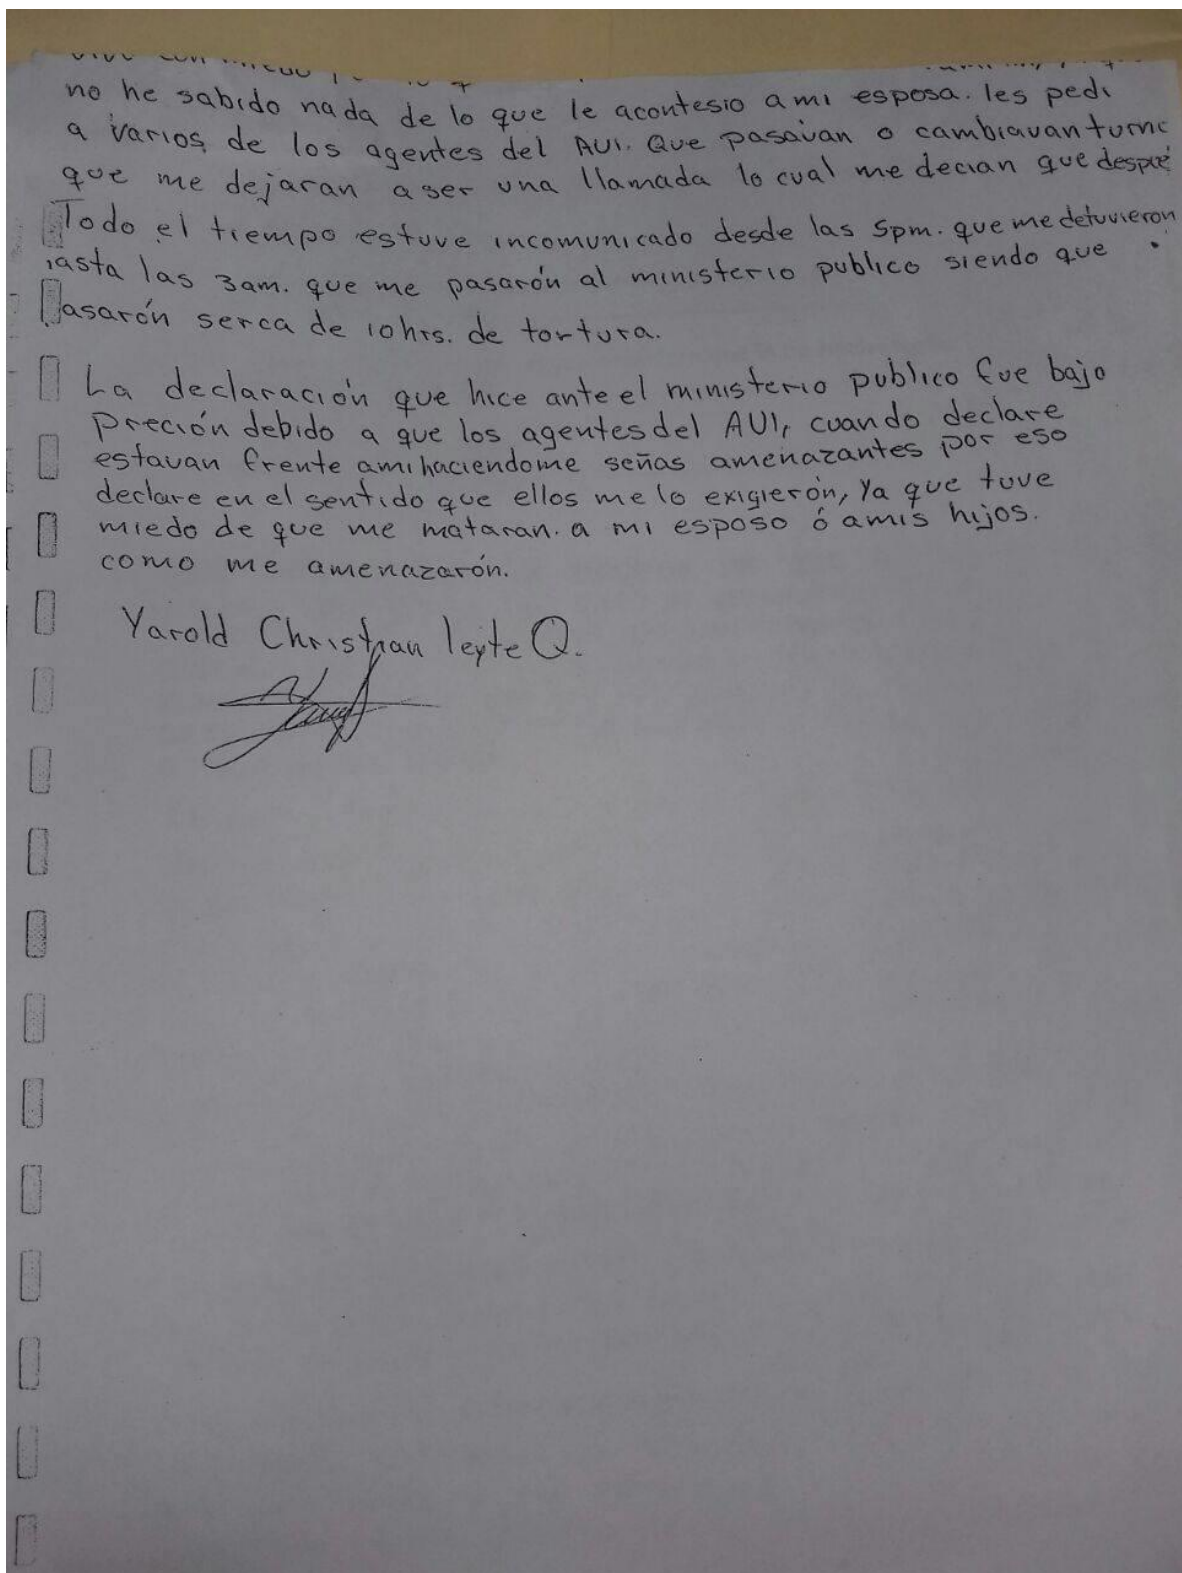 no he sabido nada de lo que le acontesio a mi esposa. les pedi
a varios de los agentes del AUI. Que pasavan o cambiavan turno
que me dejaran aser una llamada lo cual me decian que despué
Todo el tiempo estuve incomunicado desde las 5pm. que me detuvieron
asta las 3am. que me pasarón al ministerio publico siendo que
asarón serca de 10hrs. de tortura.
La declaración que hice ante el ministerio publico fue bajo
Preción debido a que los agentes del AUI, cuando declare
estavan frente ami haciendome señas amenazantes por eso
declare en el sentido que ellos me lo exigierón, Ya que tuve
miedo de que me mataran. a mi esposo ó amis hijos.
como me amenazarón.
Yarold Christian leyte Q.